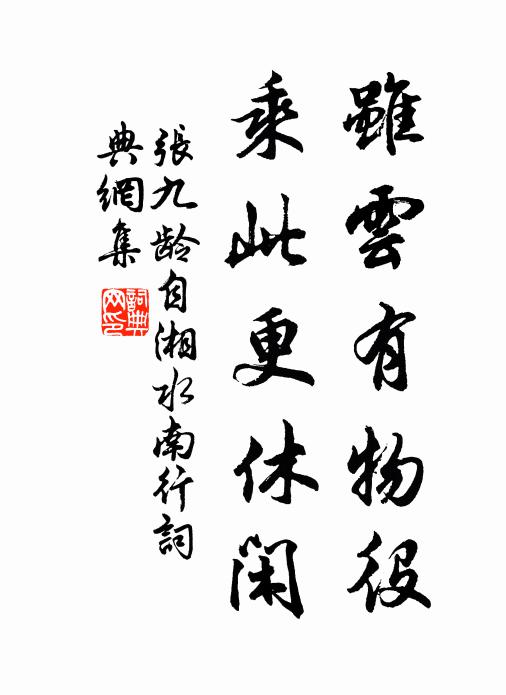 雖雲有物役
乘此更休閑
張九齡自湘水南行詞
典網集
詞典網印